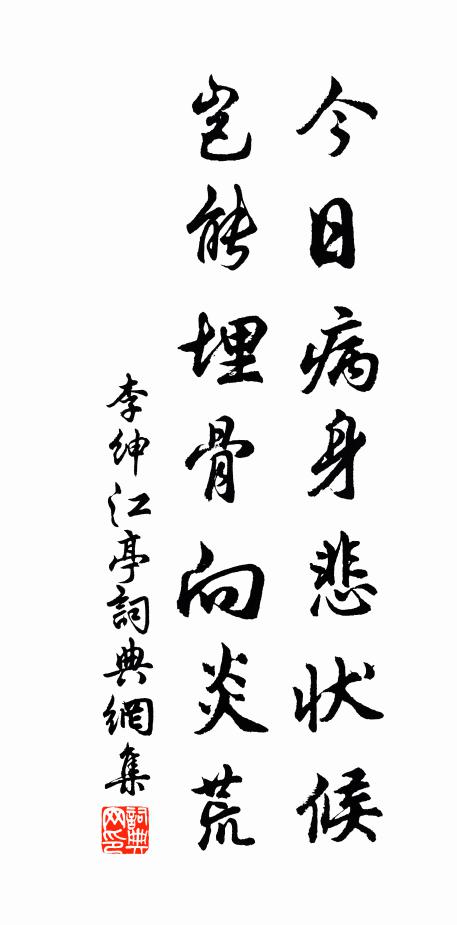 今日病身悲状候
岂能埋骨向炎荒
李紳江亭詞典網集
詞典网印